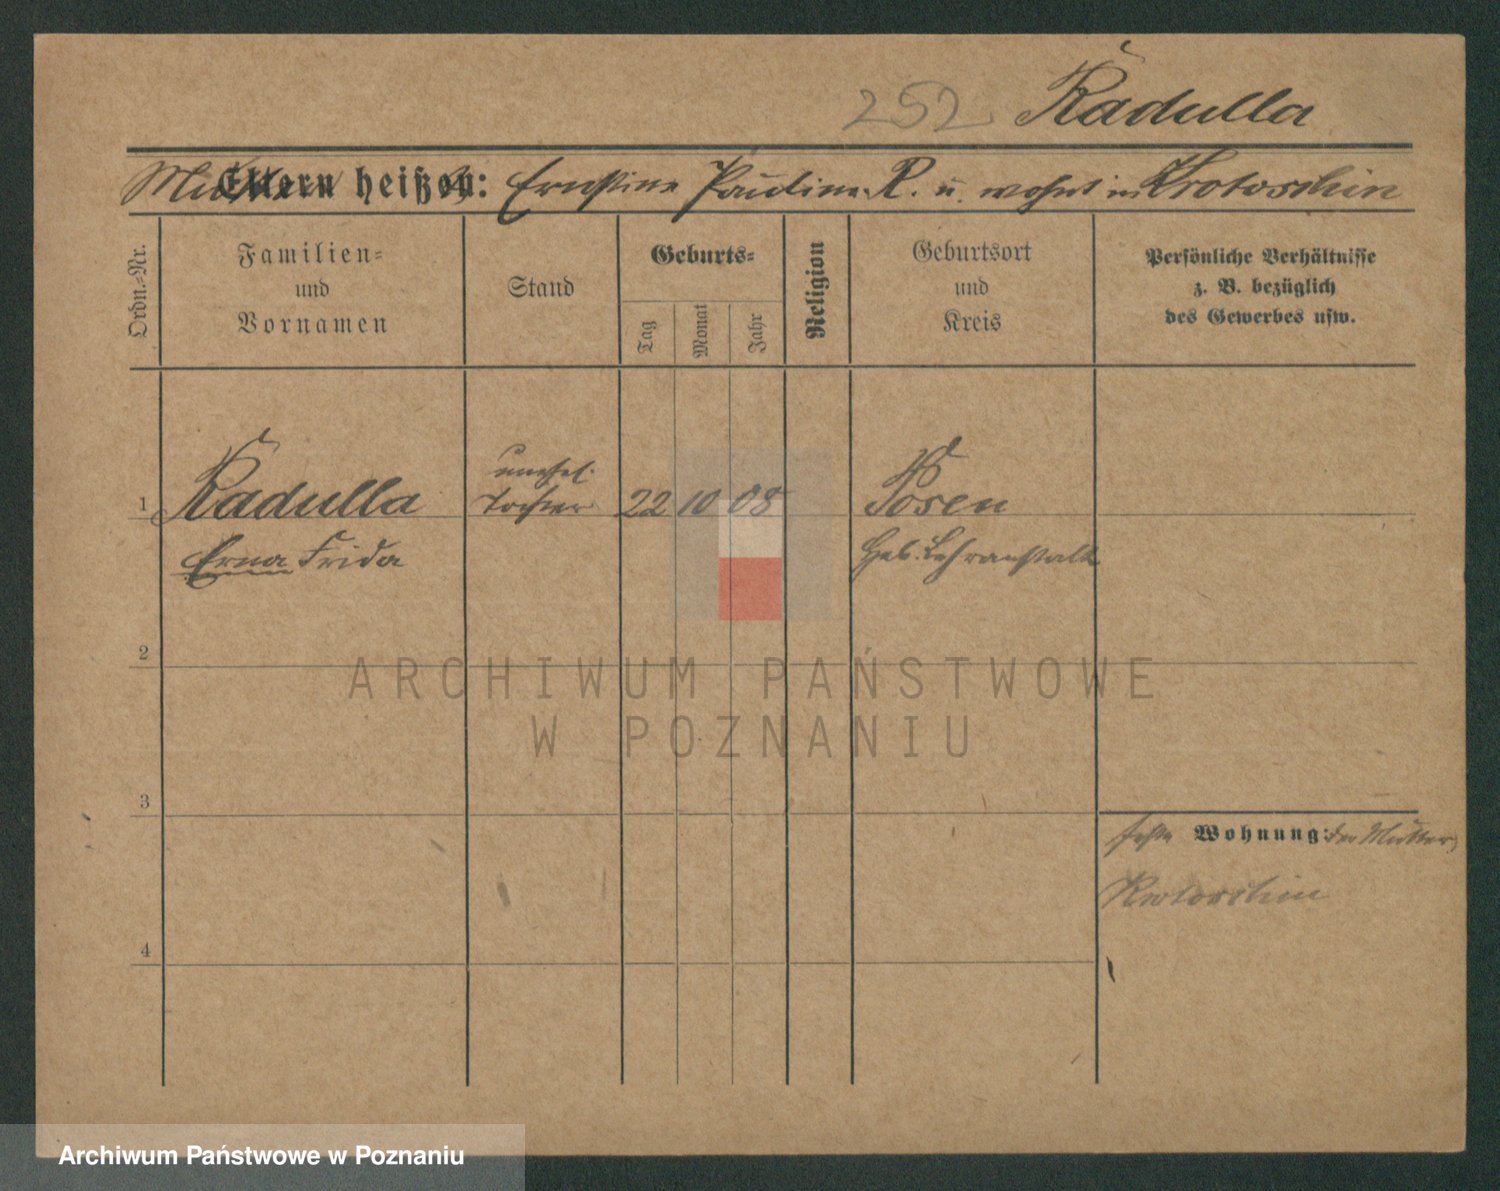 252 Radulla
Mutter heißt: Ernstine Pauline R. u. wohnt in Krotoschin
Ordn.-Nr.
Familien-
und
Vornamen
Stand
Geburts-
Tag
Monat
Jahr
Religion
Geburtsort
und
Kreis
Persönliche Verhältnisse
z. B. bezüglich
des Gewerbes usw.
unehel.
1 Radulla Tochter 22 10 08 Posen
Erna Frida Heb. Lehranstalt
2
ARCHIWUM PAŃSTWOWE
W POZNANIU
3
Wohnung: der Mutter,
Krotoschin
4
Archiwum Państwowe w Poznaniu